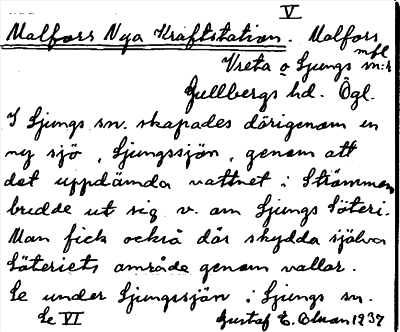 V
Malfors Nya Kraftstation. Malfors
mfl
Vreta o Ljungs sn:r
Gullbergs hd. Ögl.
I Ljungs sn. skapades därigenom en
ny sjö, Ljungssjön, genom att
det uppdämda vattnet i Strömmen
bredde ut sig v. om Ljungs Säteri.
Man fick också där skydda själva
Säteriets område genom vallar.
Se under Ljungssjön i Ljungs sn.
Se VI Gustaf E. Olsson 1937